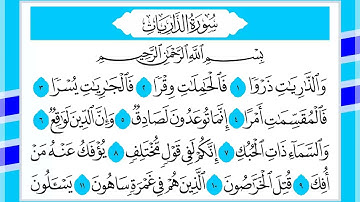 سُورَةُ الذَّارِيَاتِ
بِسْمِ اللَّهِ الرَّحْمَٰنِ الرَّحِيمِ
وَالذَّٰرِيَٰتِ ذَرْوًا ١ فَالْحَٰمِلَٰتِ وِقْرًا ٢ فَالْجَٰرِيَٰتِ يُسْرًا ٣
فَالْمُقَسِّمَٰتِ أَمْرًا ٤ إِنَّمَا تُوعَدُونَ لَصَادِقٌ ٥ وَإِنَّ الدِّينَ لَوَٰقِعٌ ٦
وَالسَّمَاءِ ذَاتِ الْحُبُكِ ٧ إِنَّكُمْ لَفِي قَوْلٍ مُّخْتَلِفٍ ٨ يُؤْفَكُ عَنْهُ مَنْ
أُفِكَ ٩ قُتِلَ الْخَرَّٰصُونَ ١٠ الَّذِينَ هُمْ فِي غَمْرَةٍ سَاهُونَ ١١ يَسْـَٔلُونَ